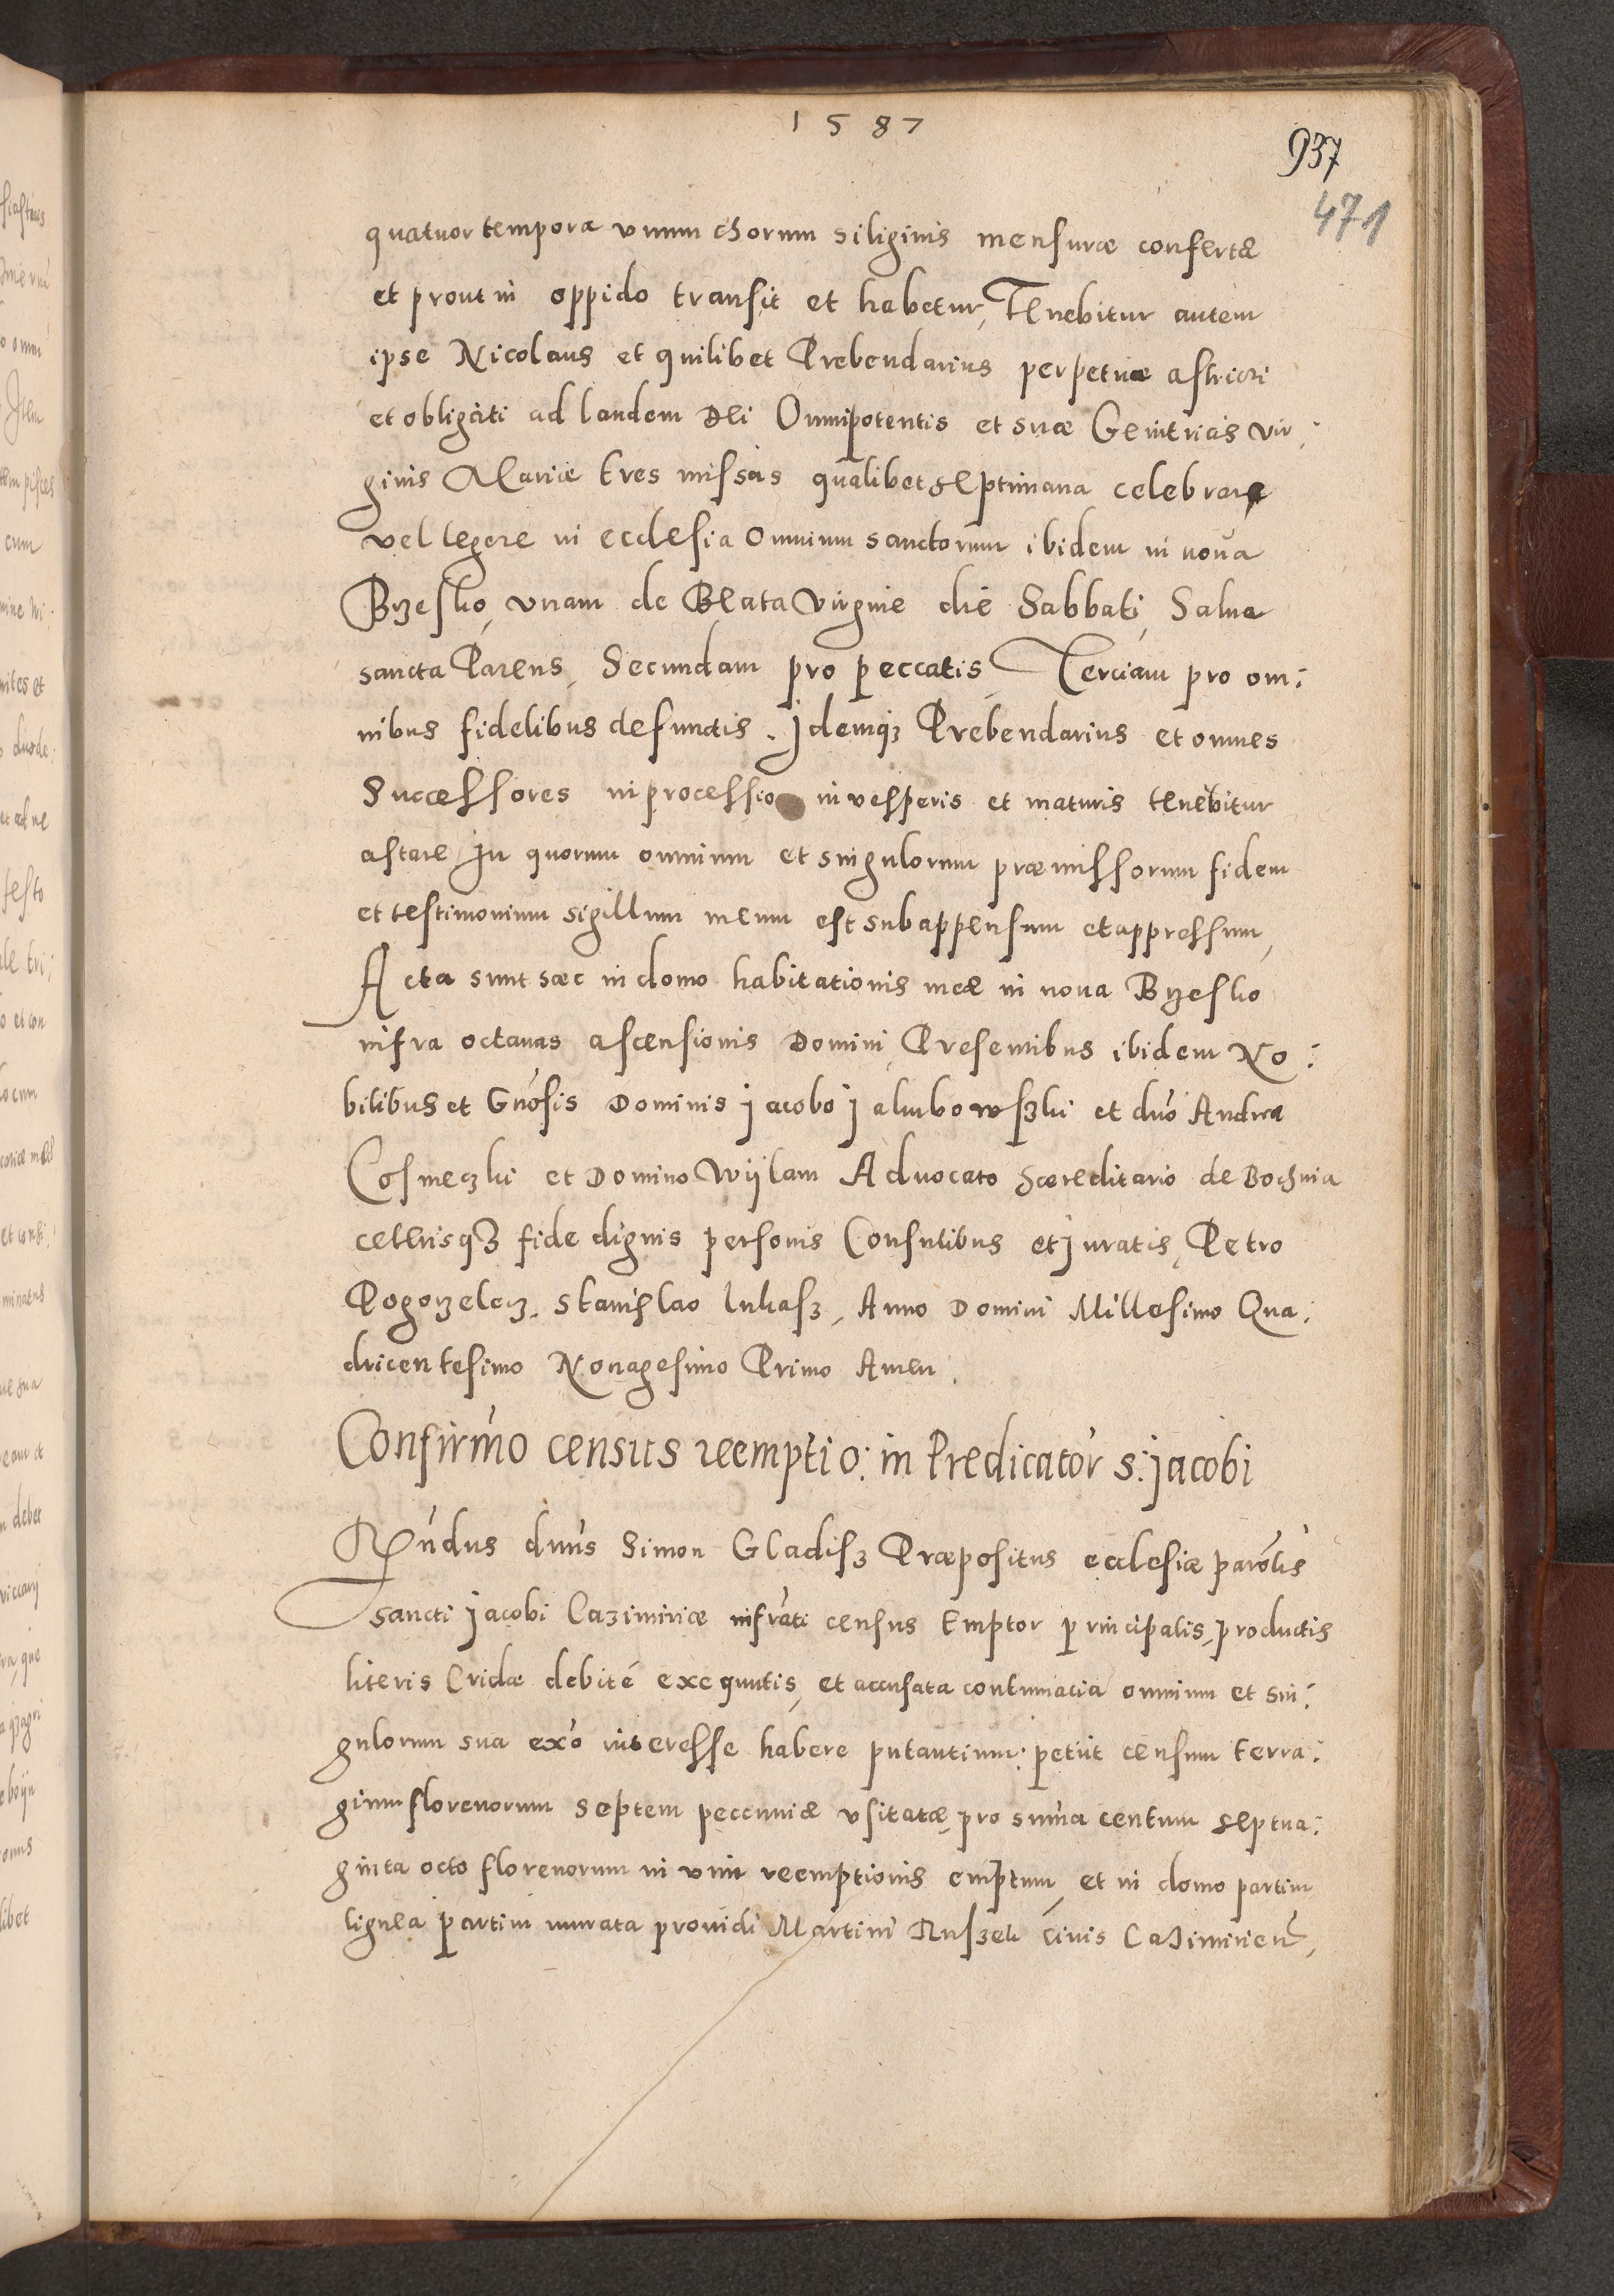 1587
937
471
quatuor tempora unum chorum siliginis mensuræ confertæ
et prout in oppido transit et habetur, Tenebitur autem
ipse Nicolaus et quilibet Prebendarius perpetuæ astricti
et obligati ad laudem Dei Omnipotentis et suæ Genitricis Vir:
ginis Mariæ tres missas qualibet septimana celebrare
vel legere in ecclesia Omnium sanctorum ibidem in noua
Brzesko, vnam de Beata Virgine die Sabbati, Salue
sancta Parens, Secundam pro peccatis, Terciam pro om:
nibus fidelibus defunctis. Jdemq3 Prebendarius et omnes
Successores in processio in vesperis et maturis tenebitur
astare Jn quorum omnium et singulorum præmissorum fidem
et testimonium sigillum meum est subappensum et appressum,
Acta sunt hæc in domo habitationis meæ in noua Brzesko
infra octauas ascensionis Domini, Presentibus ibidem No:
bilibus et Gnosis Dominis Jacobo Jakubowszki et dno Andrea
Cosmeczki et Domino Wijlam Aduocato Hæreditario de Bochnia
ceterisq3 fide dignis personis Consulibus et Juratis, Petro
Pogorzelecz. Stanislao Lukasz, Anno Domini Millesimo Qua:
dricentesimo Nonagesimo Primo Amen.
Confirmo census reemptio: in Predicator s: Jacobi
Rndus dnus Simon Gladisz Præpositus ecclesiæ parolis
sancti Jacobi Cazimiriæ infrati census Emptor principalis, productis
literis Cridæ debité exequutis, et accusata contumacia omnium et sin:
gulorum sua exo interesse habere putantium: petiit censum terra:
gium florenorum septem pecuniæ vsitatæ pro suma centum septua:
ginta octo florenorum in vim reemptionis emptum, et in domo partim
lignea partim murata prouidi Martini Ruszek ciuis Cazimirien,